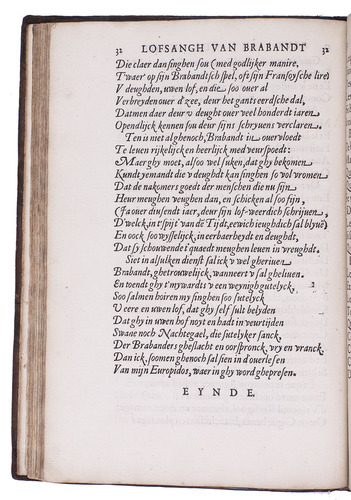 32 LOFSANGH VAN BRABANDT 32
Die claer dan singhen sou (med godlijker manire,
T'waer op sijn Brabandtsch spel, oft sijn Fransoysche lire)
V deughden, uwen lof, en die soo over al
Verbreyden over d'zee, deur het gants eerdsche dal,
Datmen daer deur v deught over veel honderdt iaren
Opendlijck kennen sou deur sijns schryvens verclaren.
Ten is niet alghenoch, Brabandt in overvloedt
Te leven rijkelijcken heerlijck med veurspoedt:
Maer ghy moet, alsoo wel suken, dat ghy bekomen
Kundt yemandt die v deughdt kan singhen so vol vromen
Dat de nakomers goedt der menschen die nu sijn
Heur meughen veughen dan, en schicken al soo sijn,
(Ja over dusendt iaer, deur sijn lof-weerdich schrijven,
D'welck, in t'spijt van de Tijdt, eewich ieughdich sal blyven)
En oock soo wysselijck, in eerbaerheydt en deughdt,
Dat sy schouwende t'quaedt meughen leven in vreughdt.
Siet in alsulken dienst sal ick v wel gherieven
Brabandt, ghetrouwelijck, wanneert v sal ghelieven.
En toendt ghy t'mywardts v een weynigh gutelyck,
Soo salmen hoiren my singhen soo sutelyck
V eere en uwen lof, dat ghy self sult belyden
Dat ghy in uwen hof noyt en hadt in veurtijden
Swane noch Nachtegael, die sutelyker sanck,
Der Brabanders gheslacht en oorspronck, vry en vranck,
Dan ick, soomen ghenoch sal sien in d'overlesen
Van mijn Europidos, waer in ghy word ghepresen.
EYNDE.